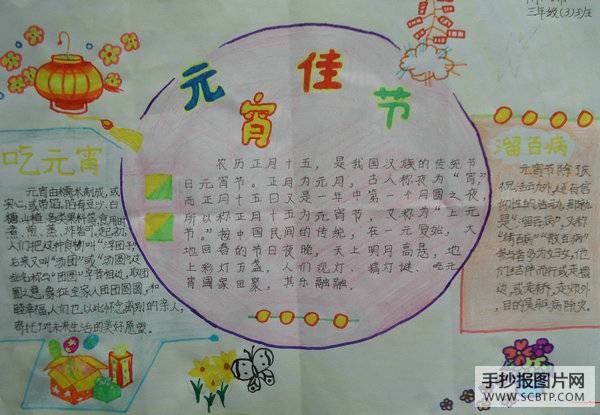 三年级(3)班
元宵佳节
吃元宵
元宵由糯米制成,或
实心,或带馅。馅有豆沙、白
糖、山楂、各类果料等,食用时
煮、煎、蒸、炸皆可。起初,
人们把这种食物叫“浮圆子”,
后来又叫“汤团”或“汤圆”,这
些名称与“团圆”字音相近,取团
圆之意,象征全家人团团圆圆,和
睦幸福,人们也以此怀念离别的亲人,
寄托了对未来生活的美好愿望。
农历正月十五,是我国汉族的传统节
日元宵节。正月为元月,古人称夜为“宵”,
而正月十五日又是一年中第一个月圆之夜,
所以称正月十五为元宵节。又称为“上元
节”。按中国民间的传统,在一元复始,大
地回春的节日夜晚,天上明月高悬,地
上彩灯万盏,人们观灯、猜灯谜、吃元
宵阖家团聚,其乐融融
溜百病
元宵节除
祝活动外,还有信
仰性的活动。那就
是“溜百病”,又称
“散百病”
参与者多为妇女,他
们结伴而行或走墙
边,或走桥,走郊外,
目的是驱病除灾。
手抄报图片网
WWW.SCBTP.COM